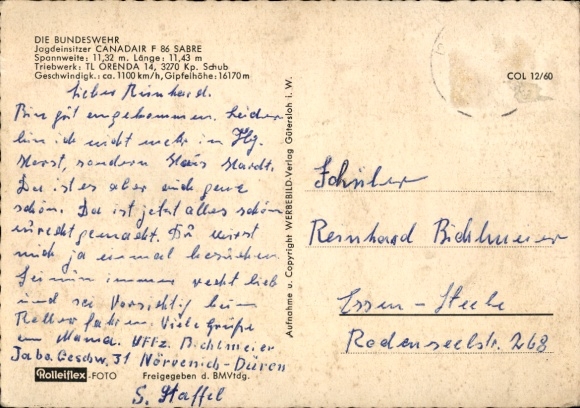 DIE BUNDESWEHR
Jagdeinsitzer CANADAIR F 86 SABRE
Spannweite: 11,32 m. Länge: 11,43 m
Triebwerk: TL ORENDA 14, 3270 Kp. Schub
Geschwindigk.: ca. 1100 km/h, Gipfelhöhe: 16170 m
Lieber Reinhard.
Bin gut angekommen. Leider
bin ich nicht mehr in Flg.
Horst, sondern Haus Hardt.
Da ist es aber auch ganz
schön. Da ist jetzt alles schön
zurecht gemacht. Du wirst
mich ja einmal besuchen.
immer recht lieb
und sei Vorsichtig beim
Roller fahren. Viele Grüße
an Mama. Uffz. Bichlmeier
Jabo. Geschw. 31 Nörvenich-Düren
S. Staffel
Rolleiflex-FOTO Freigegeben d. BMVtdg.
Aufnahme u. Copyright WERBEBILD-Verlag Gütersloh i. W.
COL 12/60
Schüler
Reinhard Bichlmeier
Essen-Steele
Rodenseelstr. 268